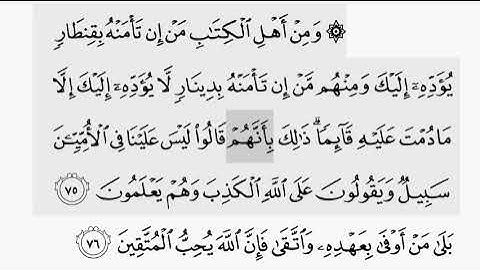 ۞ وَمِنْ أَهْلِ ٱلْكِتَٰبِ مَنْ إِن تَأْمَنْهُ بِقِنطَارٍ
يُؤَدِّهِۦٓ إِلَيْكَ وَمِنْهُم مَّنْ إِن تَأْمَنْهُ بِدِينَارٍ لَّا يُؤَدِّهِۦٓ إِلَيْكَ إِلَّا
مَا دُمْتَ عَلَيْهِ قَآئِمًا ۗ ذَٰلِكَ بِأَنَّهُمْ قَالُوا۟ لَيْسَ عَلَيْنَا فِى ٱلْأُمِّيِّـۧنَ
سَبِيلٌ وَيَقُولُونَ عَلَى ٱللَّهِ ٱلْكَذِبَ وَهُمْ يَعْلَمُونَ ٧٥
بَلَىٰ مَنْ أَوْفَىٰ بِعَهْدِهِۦ وَٱتَّقَىٰ فَإِنَّ ٱللَّهَ يُحِبُّ ٱلْمُتَّقِينَ ٧٦